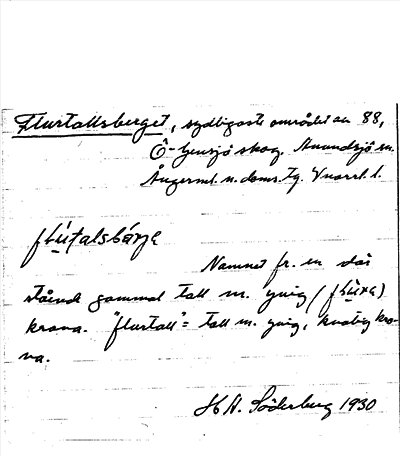 Flurtallsberget, sydligaste området av 88,
Ö-Gensjö skog, Anundsjö sn.
Ångerml. n. doms. tg. Vnorrl. l.
fɫu̲ṭalsbárja
Namnet fr. en där
stående gammal tall m. yvig (fɫu̲ra)
krona. "flurtall" = tall m. yvig, kvistig kro-
na.
H A. Söderberg 1930